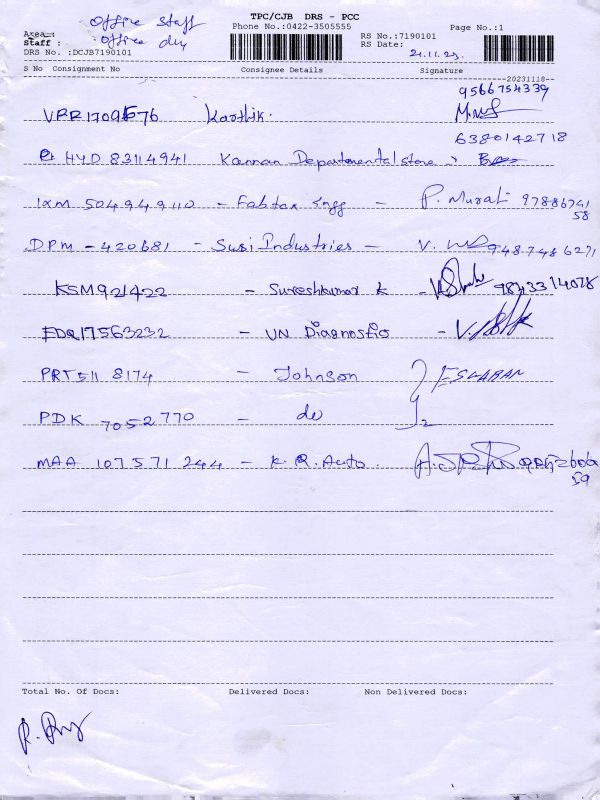 TPC/CJB DRS - PCC
Office Staff
Phone No.:0422-3505555
Page No.:1
Area :
RS No.:7190101
Staff : Office dly
RS Date: 21.11.23.
DRS No. :DCJB7190101
S No Consignment No Consignee Details Signature
20231118
9566754339
VPR1709576 Karthik.
6380142718
HYD 83114941 Kannan Departmental Store
IXM 504949110 - Fabtex Engg - P. Murali 97886741
58
DPM - 420681 - Susi Industries - V. 9487486271
KSM921422 - Sureshkumar K - 9843314078
EDQ17563232 - VN Diagnostic -
PRT511 8174 - Johnson ESLABAN
PDK 7052770 - do
MAA 107571244 - K.R. Auto.
59
Total No. Of Docs: Delivered Docs: Non Delivered Docs: